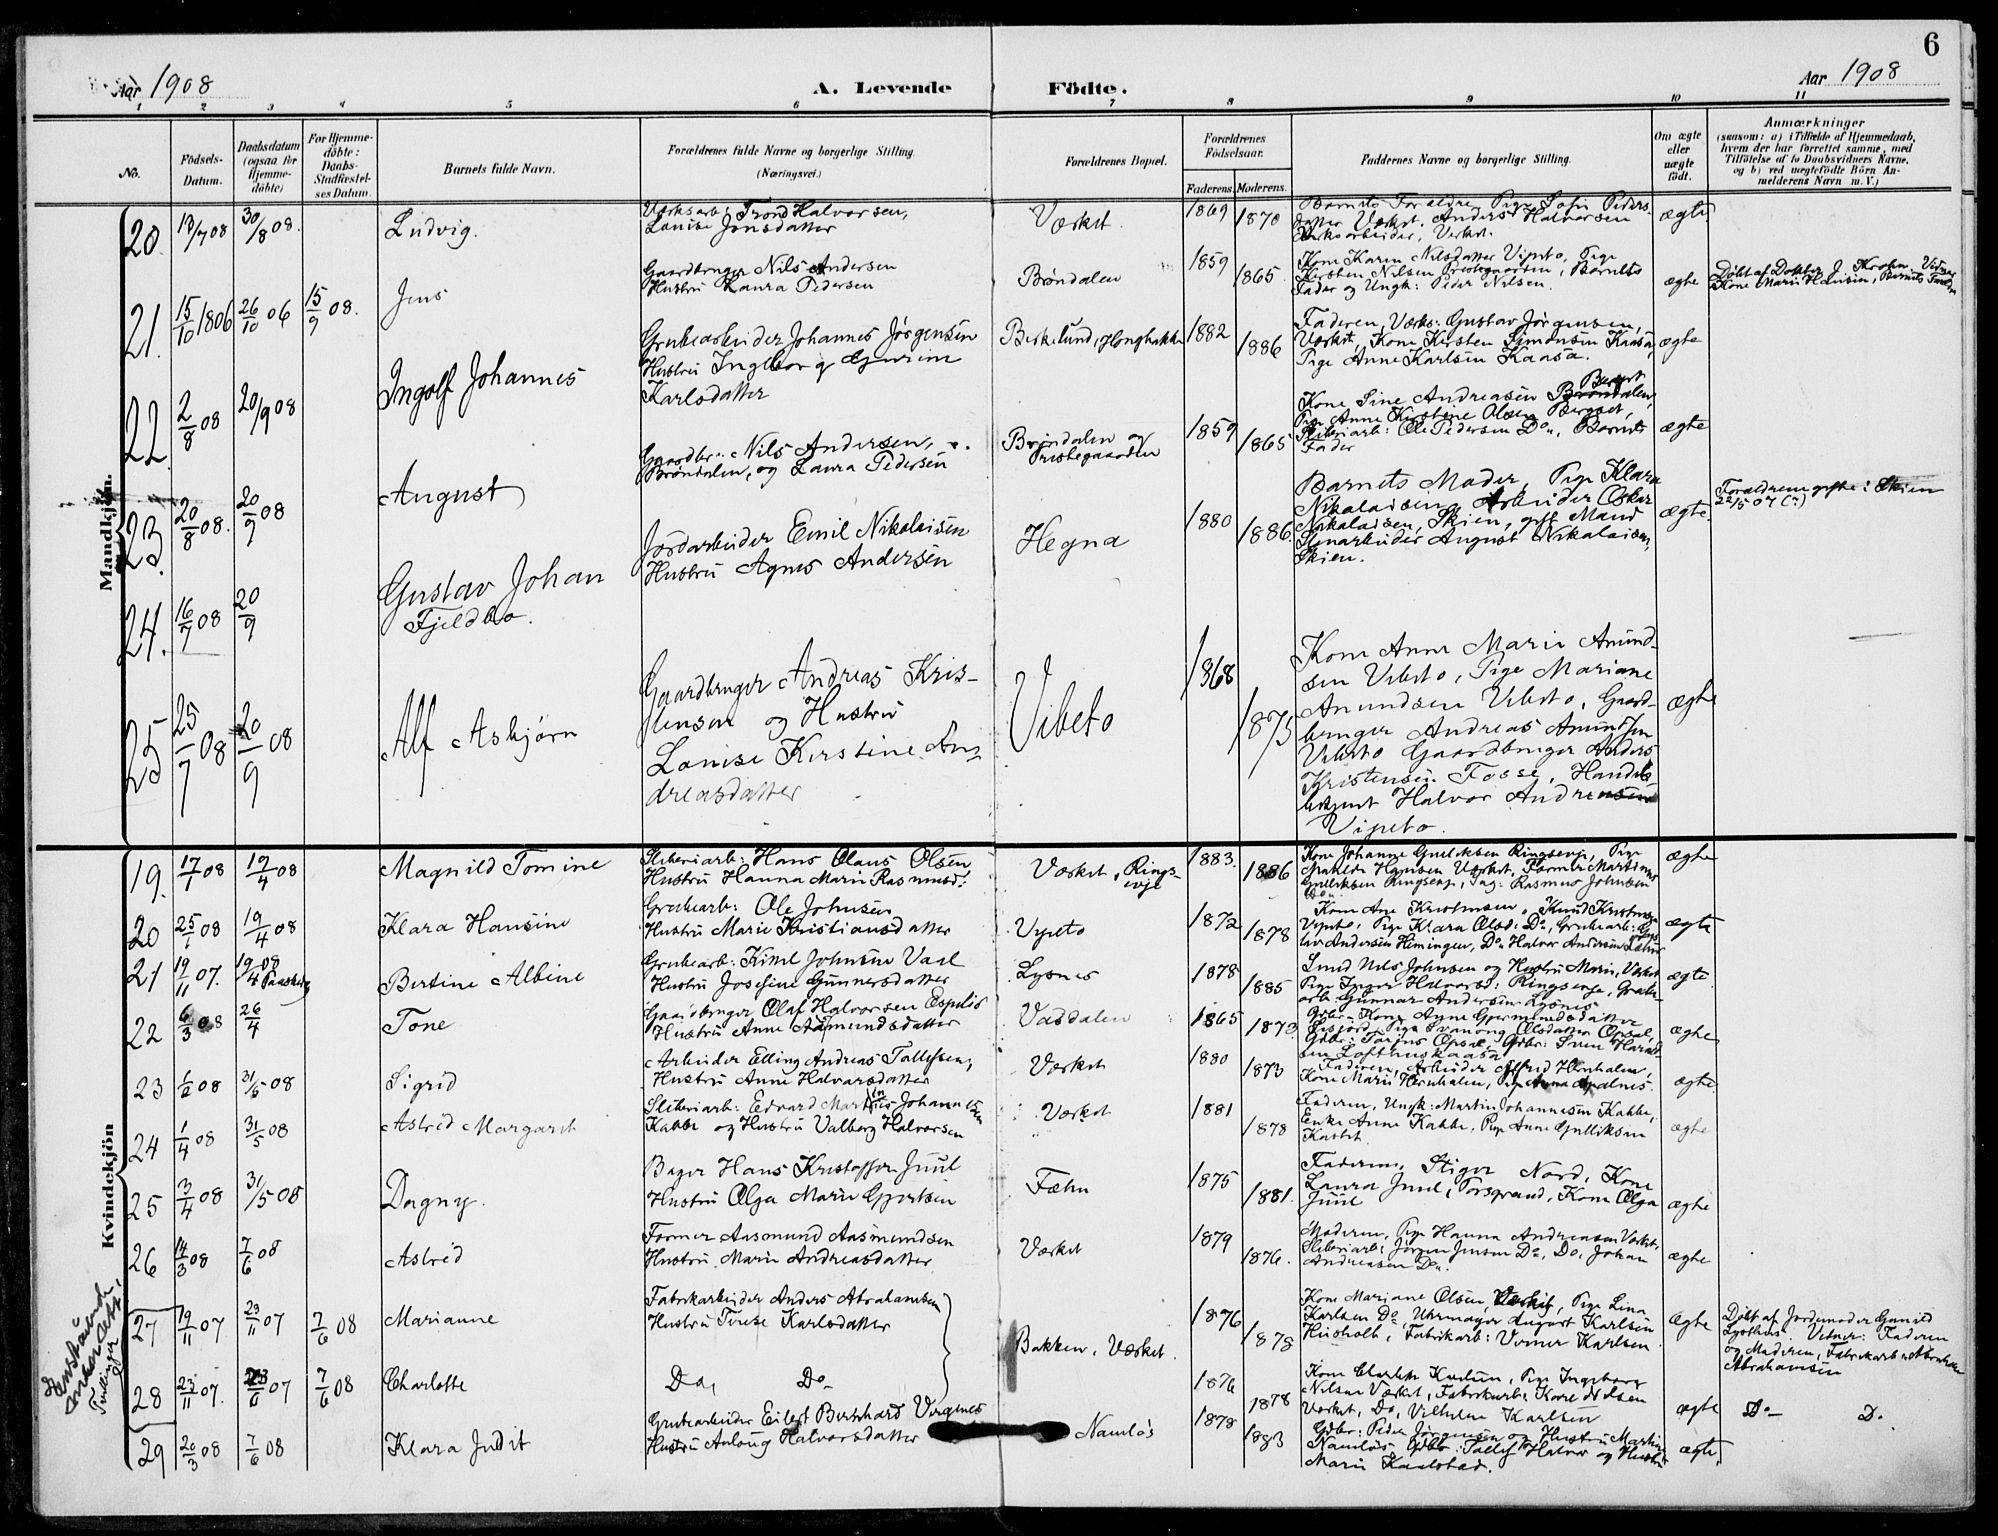 6
Aar 1908
A. Levende Födte.
Aar 1908
1 2 3 4 5 6 7 8 9 10 11
No.
Födsels-
Datum.
Daabsdatum
(ogsaa for
Hjemme-
döbte)
For Hjemme-
döbte:
Daabs-
Stadfæstel-
ses Datum.
Barnets fulde Navn.
Forældrenes fulde Navne og borgerlige Stilling.
(Næringsvei.)
Forældrenes Bopæl.
Forældrenes
Födselsaar.
Faderens. Moderens.
Faddernes Navne og borgerlige Stilling.
Om ægte
eller
uægte
födt.
Anmærkninger
(saasom: a) i Tilfælde af Hjemmedaab,
hvem der har forrettet samme, med
Tilföielse af to Daabsvidners Navne,
og b) ved uægtefödte Börn An-
melderens Navn m. V.)
Mandkjön.
20. 30/8 08. Ludvig.
Værksarb: Trond Halvorsen,
Louise Jonsdatter
Værket. 1869 1870
Barnets Forældre, Pige Sofie Peders-
datter Værket. Anders Halvorsen
Værksarbeider, Verket.
ægte
21. 15/10 1806 26/10 06 15/9 08. Jens
Gaardbruger Nils Andersen
Hustru Laura Pedersen
Brøndalen 1859 1865
Kone Karen Nilsdatter Vipeto, Pige
Kirsten Nilsen Prestegaarden, Barnets
Fader og Ungk: Peder Nilsen.
ægte
Døbt af Doktor J. Krohn. Vidner
Kone Marie Hansen, Barnets Fader
22. 2/8 08 20/9 08 Ingolf Johannes
Grubearbeider Johannes Jørgensen
Hustru Ingeborg Gurine
Karlsdatter
Birkelund, 1882 1886
Faderen, Værks: Gustav Jørgensen,
Værket, Kone Kirsten Simonsen Kaasa,
Pige Anne Karlsen Kaasa.
ægte
23. 20/8 08. 20/9 08 August
Gaardbr.: Nils Andersen,
Brøndalen, og Laura Pedersen
Brøndalen og
Prestegaarden
1859 1865
Berget
Kone Sine Andreasen Brøndalen,
Pige Anne Kirstine Olsen Berget,
Sliberiarb: Ole Pedersen Do., Barnets
Fader
ægte
24. 16/7 08 20/9 Gustav Johan
Fjeldbo.
Jordarbeider Emil Nikolaisen
Hustru Agnes Andersen
Hegna 1880 1886.
Barnets Moder, Pige Klara
Nikolaisen, Arbeider Oskar
Nikolaisen, Skien, gift Mand
Stenarbeider August Nikolaisen,
Skien.
ægte.
Forældrene gifte i Skien
22/5 07 (?)
25 25/7 08 20/9 08 Alf Asbjørn
Gaardbruger Andreas Kris-
tensen og Hustru
Louise Kirstine An-
dreasdatter
Vibeto 1868 1875
Kone Anne Marie Amund-
sen Vibeto, Pige Mariane
Amundsen Vibeto, Gaard-
bruger Andreas Amundsen
Vibeto Gaardbruger Anders
Kristensen Fosse, Handels-
betjent Halvor Andreassen
Vipeto.
ægte
Kvindekjön
19. 17/1 08 19/4 08 Magnild Tomine
Sliberiarb: Hans Olaus Olsen,
Hustru Hanna Marie Rasmusd:
Værket, Rings-
eje
1883. 1886
Kone Johanne Gulliksen Ringseje, Pige
Makilde Hansen Værket, Former Martinus
Gulliksen Ringseje, Rasmus Johnsen
Do.
ægte
20 25/1 08 19/4 08 Klara Hansine
Grubearb: Ole Johnsen
Hustru Marie Kristiansdatter
Vipeto 1872 1878
Kone Ane Kristensen, Knud Kristensen
Vipeto, Pige Klara Olsd: Do, Grubearb:
Andersen Hemingen, Do Halvor Andersen
ægte
21 19/11 07. 19/4 08
Paaske
Bertine Albine
Grubearb: Kittil Johnsen Vaal
Hustru Josefine Gunnersdatter
Lysnes 1878 1885
Smed Nils Johnsen og Hustru Marie, Værket
Pige Inger Halvorsd: Ringseje, Grube-
arb: Gunnar Andersen Lysnes
ægte
22 6/3 08 26/4 Tone
Gaardbruger Olaf Halvorsen Espelid
Hustru Anne Aasmundsdatter
Vaadalen 1865 1873
Gdbr: Kone Anne Gjermundsdatter
Olsdatter Opsal,
Gdbr: Opsal, Gdbr: Sven Harald-
sen Lofthuskaasa
ægte
23 1/2 08 31/5 08 Sigrid
Arbeider Elling Andreas Tallefsen,
Hustru Anne Halvorsdatter
Værket 1880 1873
Faderen, Arbeider Alfred Hernhalen,
Kone Marie Hernhalen, Pige Anna
ægte
24 1/4 08 31/5 08 Astrid Margaret
Sliberiarb: Edvard Martines Johannesen
Kabbe og Hustru Valborg Halvorsen
Værket 1881 1878
Faderen, Ungk: Martin Johannesen Kabbe,
Enke Anne Kabbe, Pige Anne Gulliksen
ægte
25 3/4 08 31/5 08 Dagny.
Bager Hans Kristoffer Juul
Hustru Olga Marie Gjertsen
Fæhn 1875 1881.
Faderen, Stiger Nord, Kone
Laura Juul, Porsgrund, Kone Olga
Juul
ægte
26 14/3 08 7/6 08 Astrid
Former Aasmund Aasmundsen
Hustru Marie Andreasdatter
Værket 1879 1876.
Moderen, Pige Hanna Andreasen Værket,
Sliberiarb: Jørgen Jensen Do, Do, Johan
Andreasen Do.
ægte
Tvillinger
27 19/11 07 23/11 07 7/6 08 Marianne
Fabrikarbeider Anders Abrahamsen
Hustru Karlsdatter
Bakken, Værket. 1876 1878
Kone Mariane Olsen, Værket, Pige Lina
Karlsen Do, Uhrmager August Karlsen
Husholt, Fabrikarb: Verner Karlsen
Ægte
Døbt af Jordemoder Gunild
Lysthus. Vitner: Faderen
og Moderen, Fabrikarb: Abraham
Abrahamsen
28 23/11 07. 23/6 07 7/6 08 Charlotte
Do, Do
1876 1878
Kone Charlotte Karlsen, Pige Ingeborg
Nilsen Værket, Fabrikarb: Karl Nilsen
Værket, Do, Vilhelm Karlsen
ægte
Do D.
29 20/3 08 7/6 08 Klara Judit
Grubearbeider Eilert Bernhard Virgenes
Hustru Aslaug Halvorsdatter
Namløs 1878 1883
Gdbr: Peder Jørgensen og Hustru
Namløs, Gdbr: Tallef Halvor og Hustru
Marie Kaalstad.
ægte,